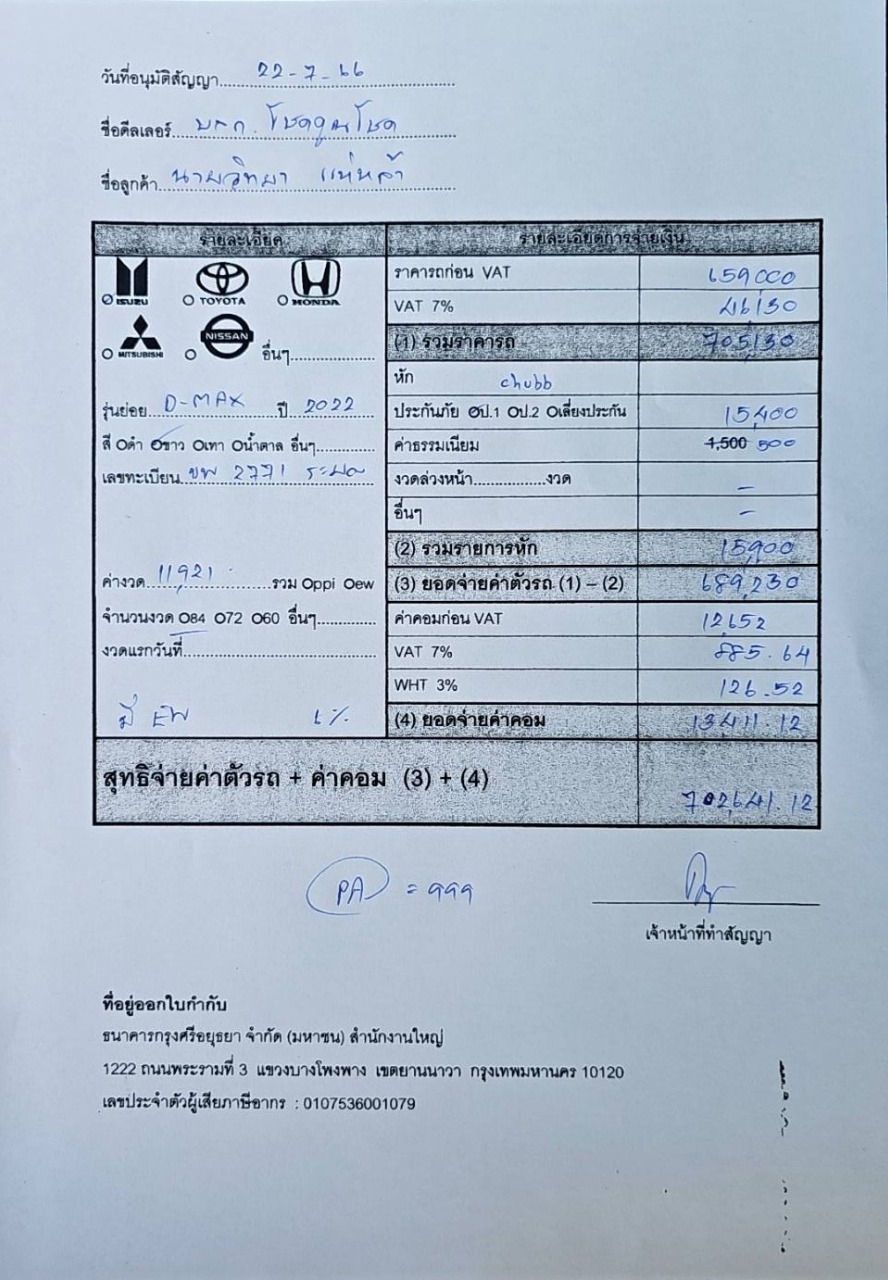 วันที่อนุมัติสัญญา 22-7-66
ชื่อดีลเลอร์ บจก. โชคคูณโชค
ชื่อลูกค้า นายวิทยา แห่หล้า
รายละเอียด
รายละเอียดการจ่ายเงิน
ISUZU TOYOTA HONDA
MITSUBISHI NISSAN อื่นๆ
รุ่นย่อย D-MAX ปี 2022
สี ดำ ขาว เทา น้ำตาล อื่นๆ
เลขทะเบียน 2771
ค่างวด 11,921 รวม ppi ew
จำนวนงวด 84 72 60 อื่นๆ
งวดแรกวันที่
มี EW 6%
ราคารถก่อน VAT 659,000
VAT 7% 46,130
(1) รวมราคารถ 705,130
หัก chubb
ประกันภัย ป.1 ป.2 เลี่ยงประกัน 15,400
ค่าธรรมเนียม 1,500 500
งวดล่วงหน้า งวด –
อื่นๆ –
(2) รวมรายการหัก 15,900
(3) ยอดจ่ายค่าตัวรถ (1) – (2) 689,230
ค่าคอมก่อน VAT 12,652
VAT 7% 885.64
WHT 3% 126.52
(4) ยอดจ่ายค่าคอม 13,411.12
สุทธิจ่ายค่าตัวรถ + ค่าคอม (3) + (4) 702,641.12
PA = 999
เจ้าหน้าที่ทำสัญญา
ที่อยู่ออกใบกำกับ
ธนาคารกรุงศรีอยุธยา จำกัด (มหาชน) สำนักงานใหญ่
1222 ถนนพระรามที่ 3 แขวงบางโพงพาง เขตยานนาวา กรุงเทพมหานคร 10120
เลขประจำตัวผู้เสียภาษีอากร : 0107536001079